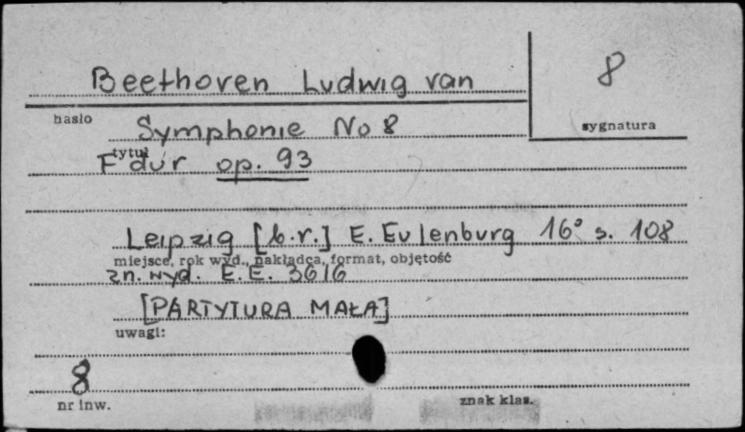 Beethoven Ludwig van
8
hasło
sygnatura
Symphonie No 8
tytuł
F dur op. 93
Leipzig [b.r.] E. Eulenburg 16° s. 108
miejsce, rok wyd., nakładca, format, objętość
zn. wyd. E.E. 3616
[PARTYTURA MAŁA]
uwagi:
8
nr inw.
znak klas.